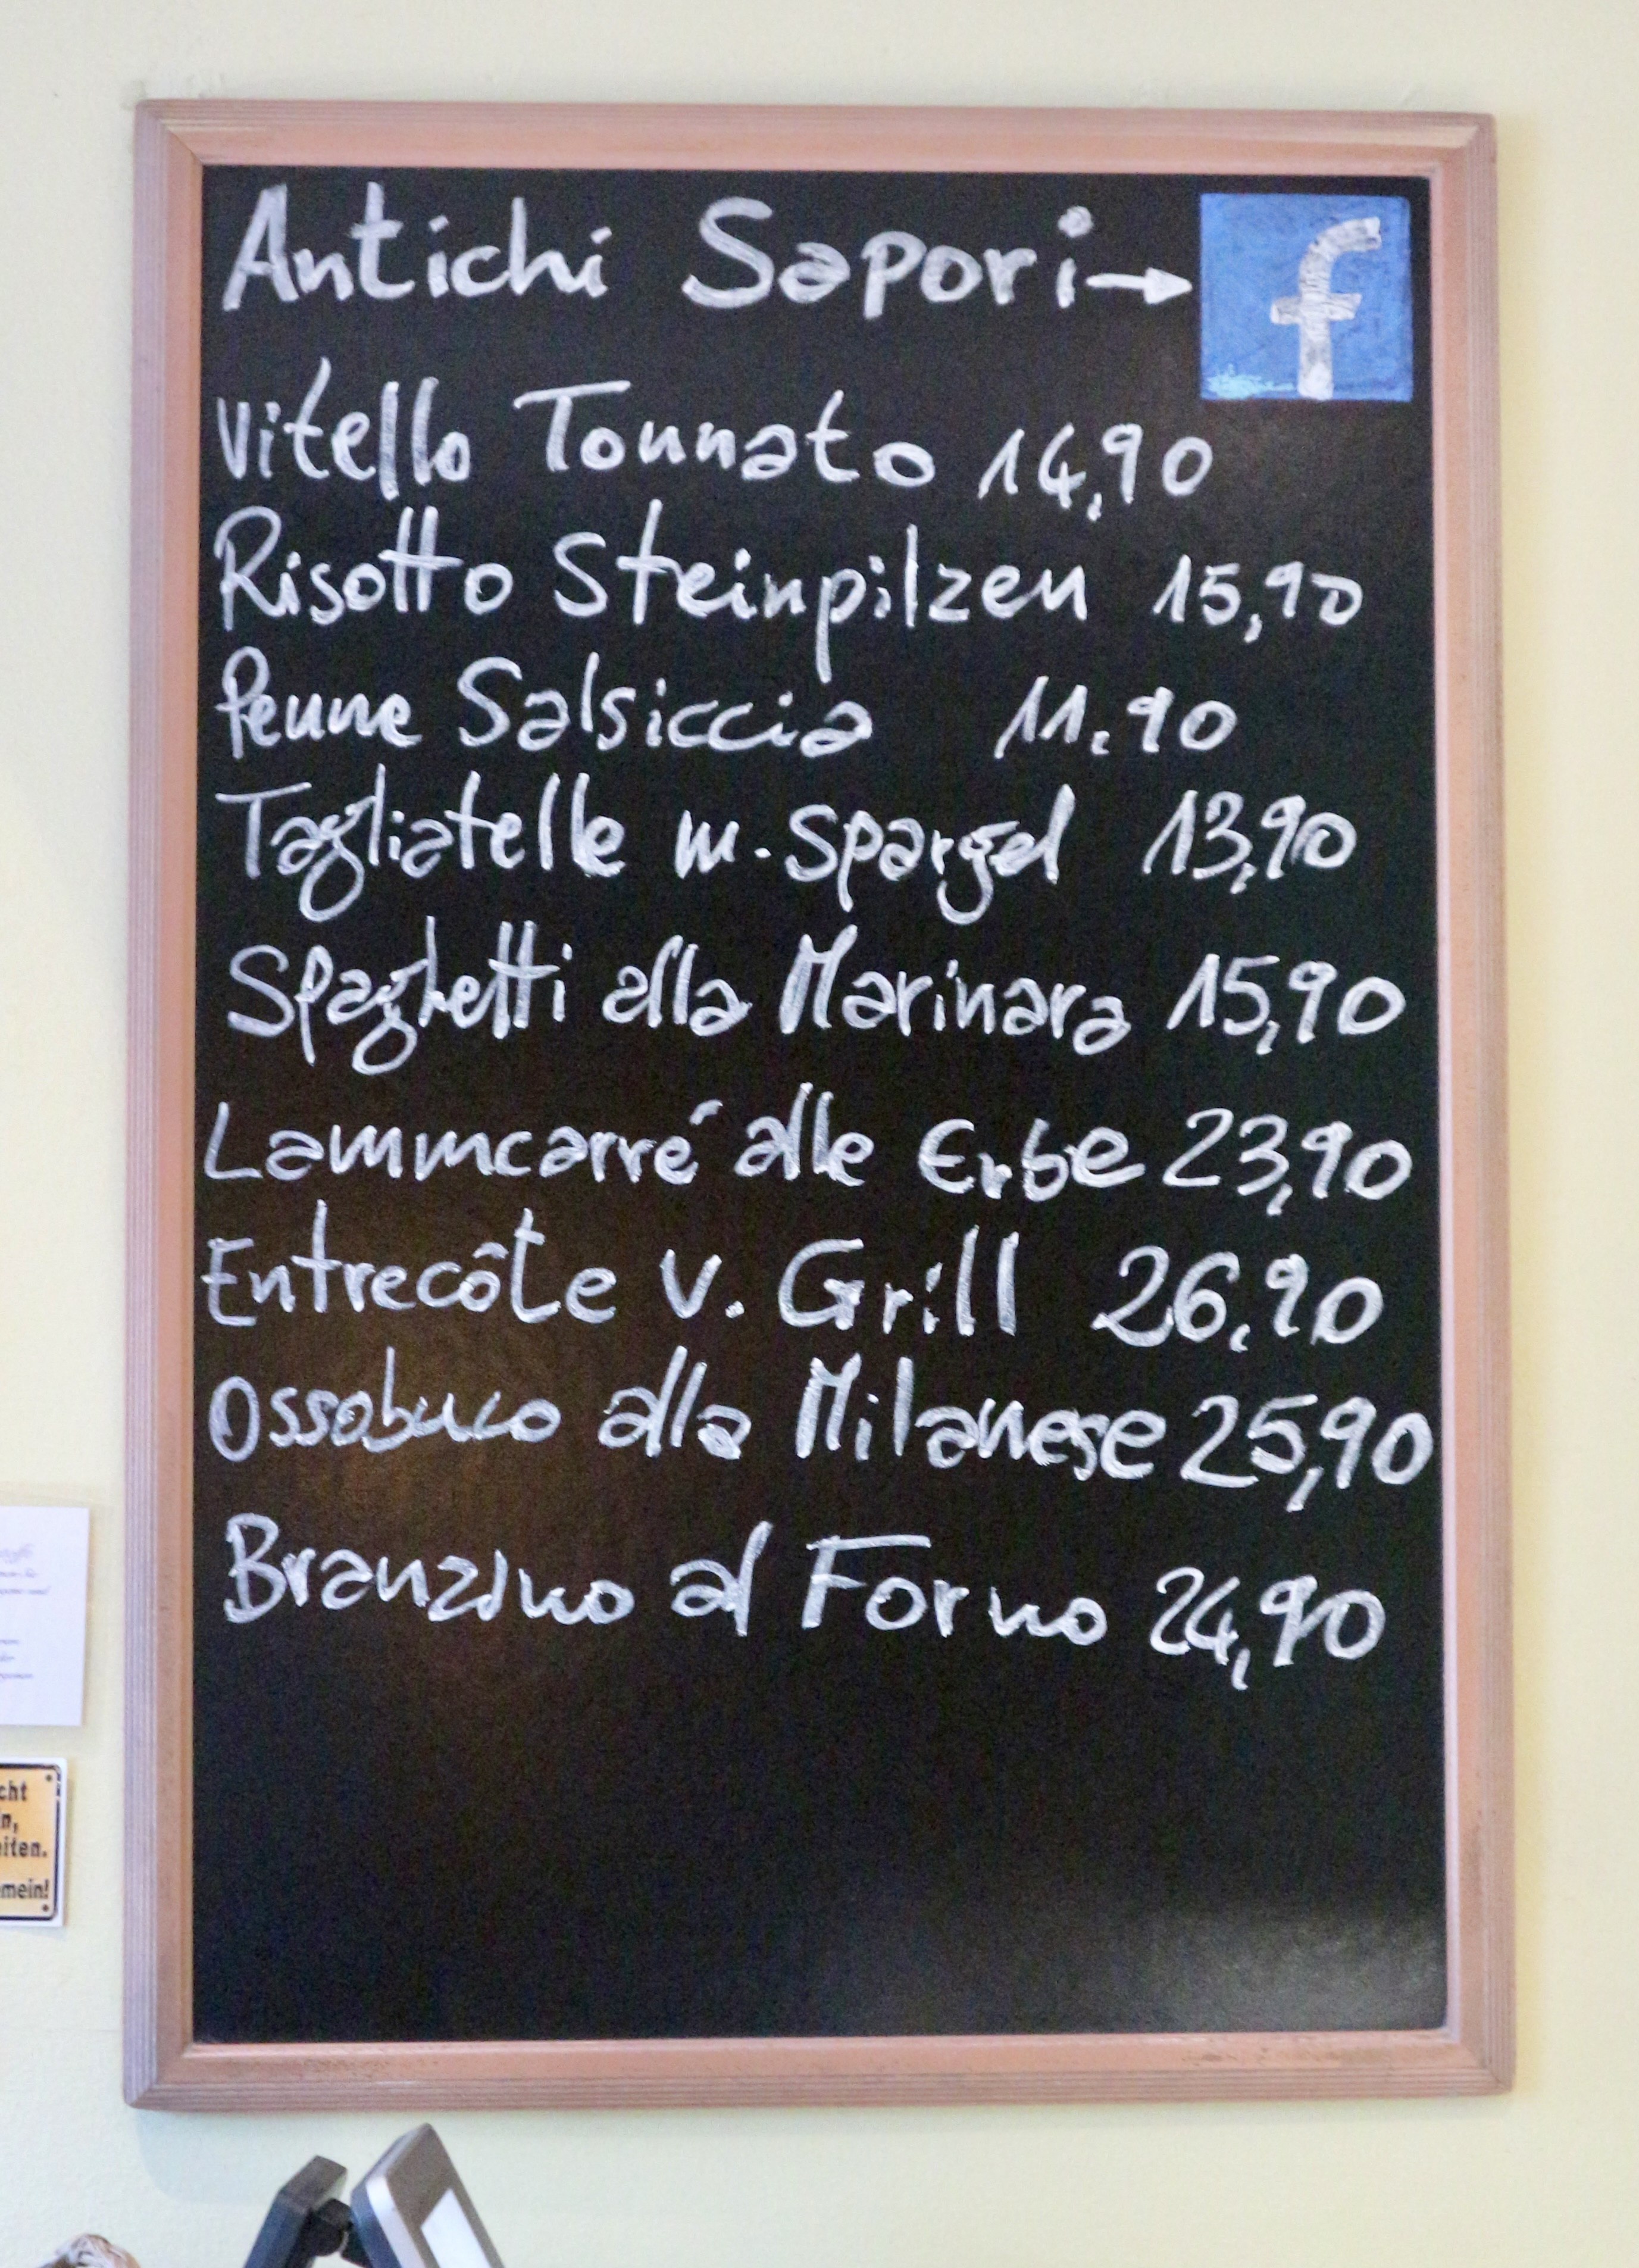 Antichi Sapori → f
Vitello Tonnato 14,90
Risotto Steinpilzen 15,90
Penne Salsiccia 11.90
Tagliatelle m. Spargel 13,90
Spaghetti alla Marinara 15,90
Lammcarré alle Erbe 23,90
Entrecôte v. Grill 26,90
Ossobuco alla Milanese 25,90
Branzino al Forno 24,90
cht
n,
eiten.
mein!